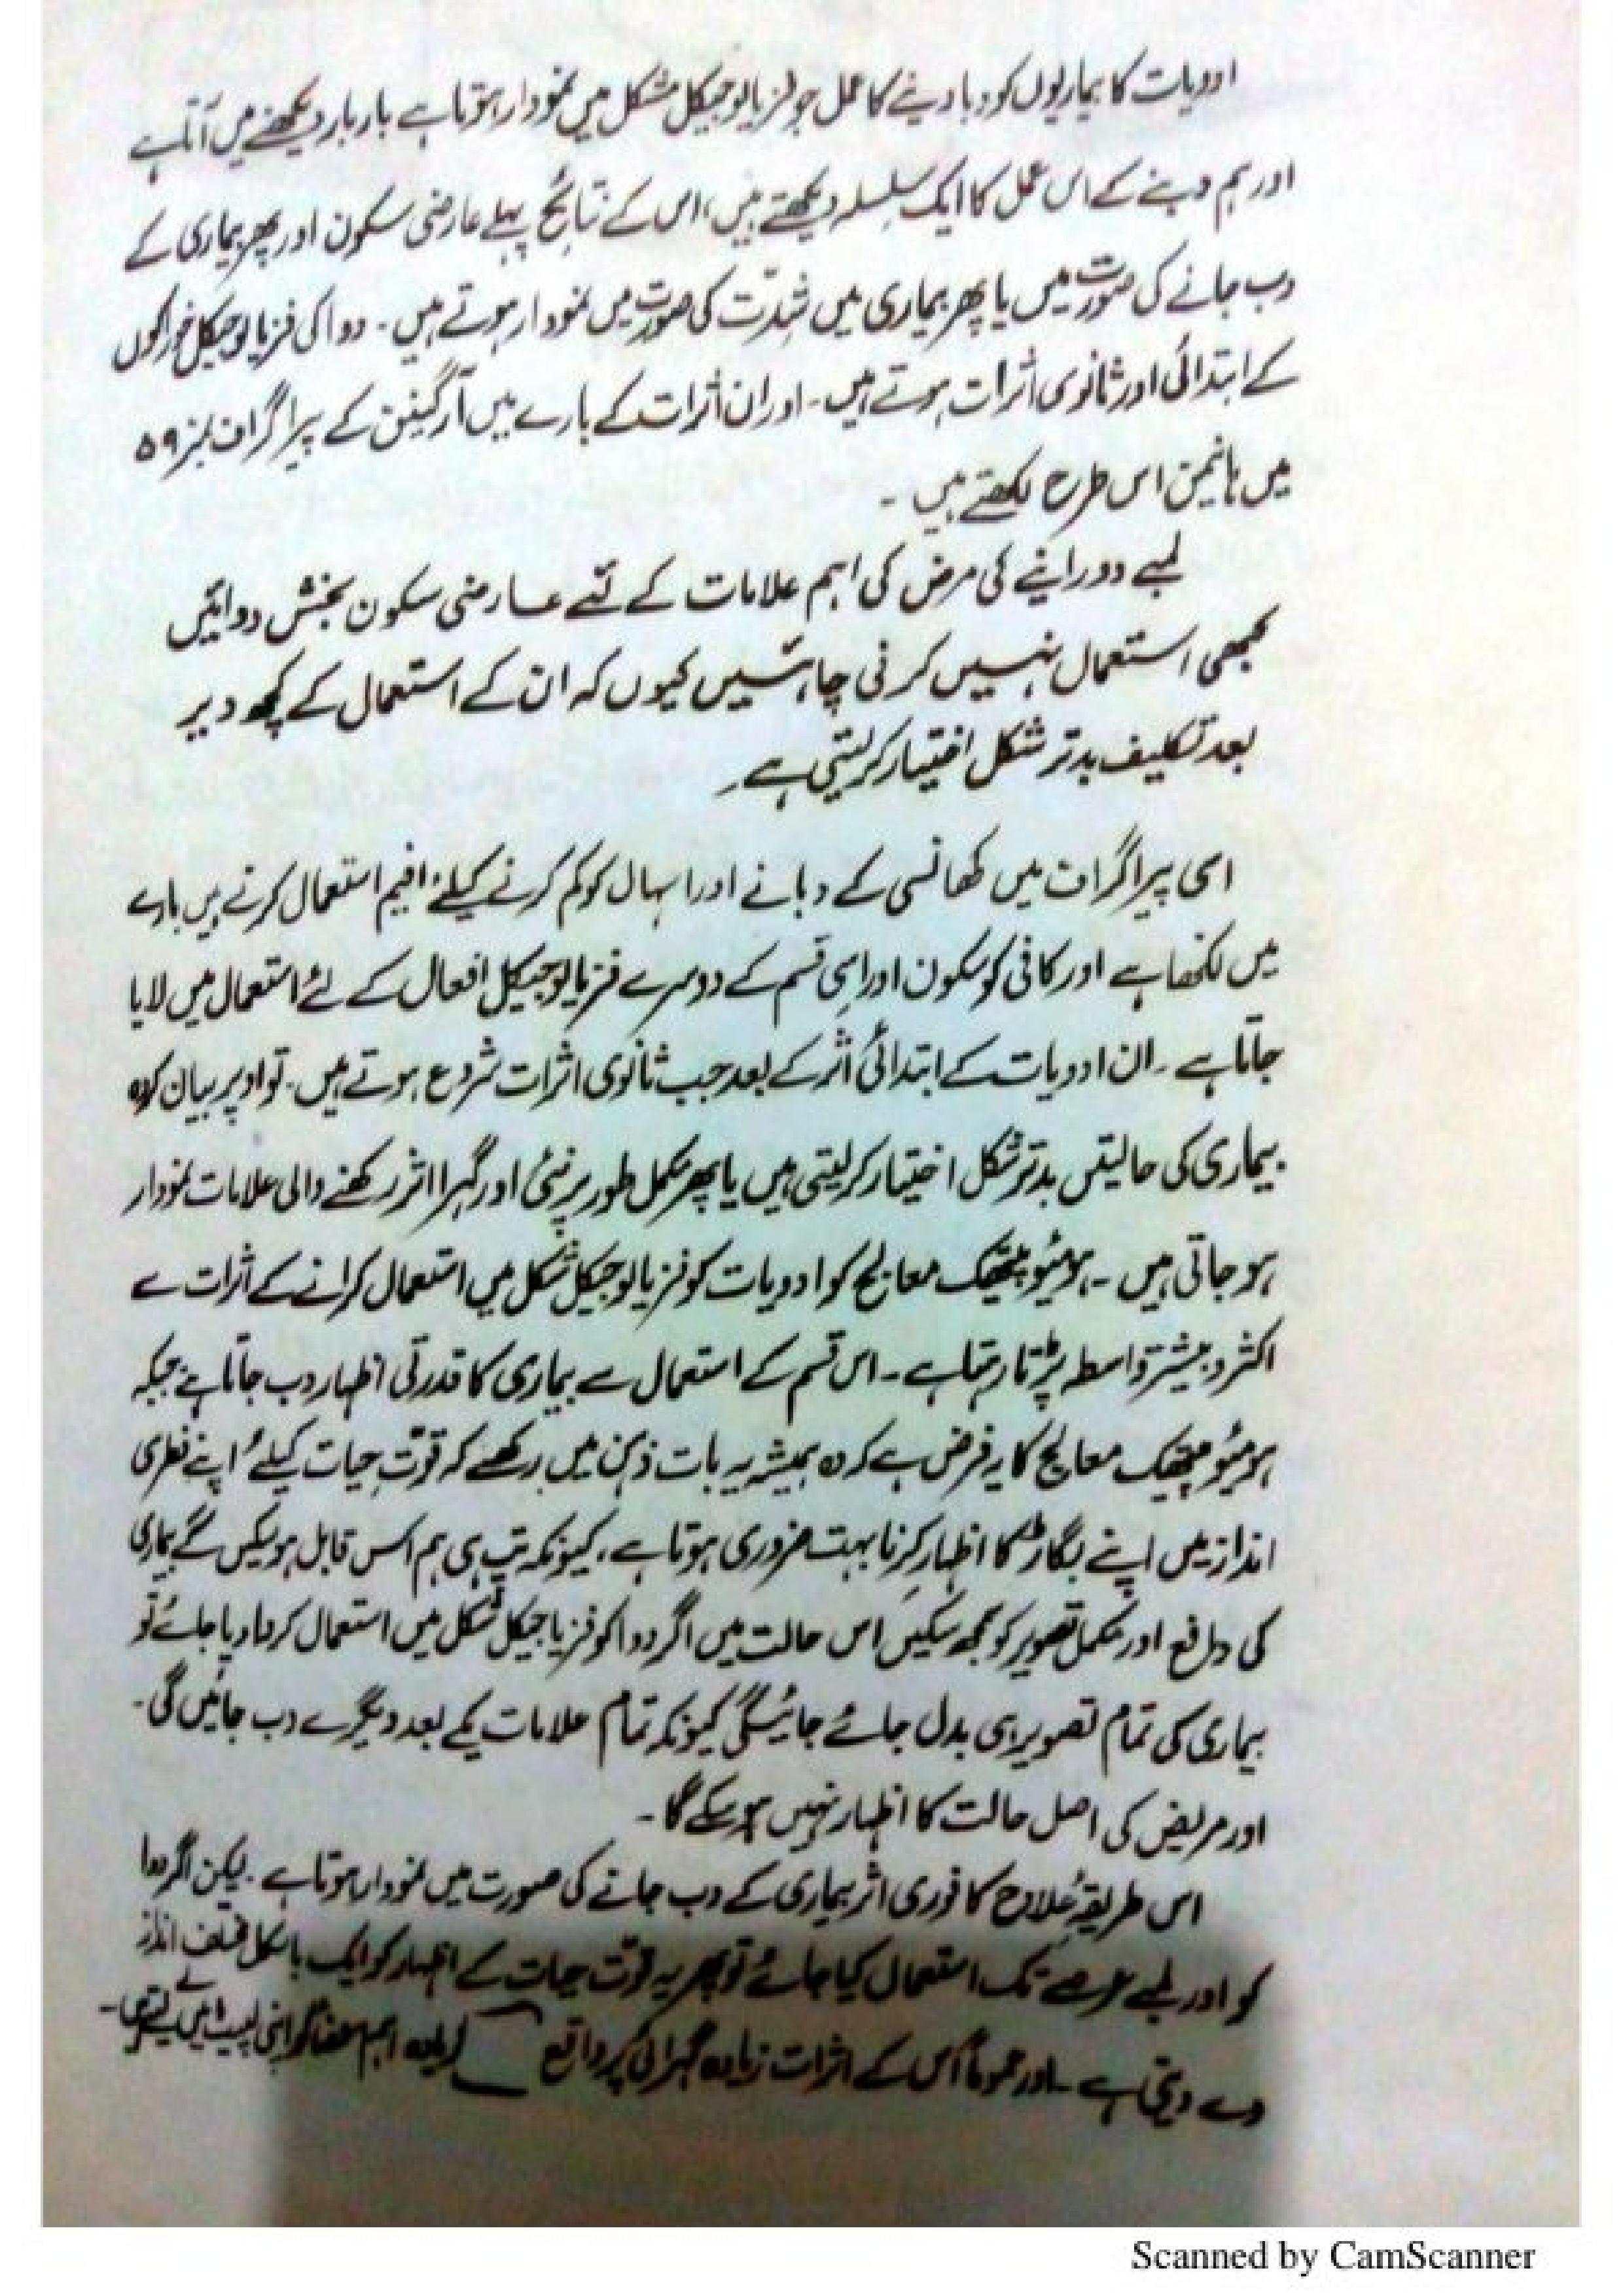 ادویات کا بیماریوں کو دبا دینے کا عمل جو فزیالوجیکل مشکل میں نمودار ہوتا ہے بار بار دیکھنے میں آتا ہے
اور ہم دبنے کے اس عمل کا ایک سلسلہ دیکھتے ہیں، اس کے نتائج پہلے عارضی سکون اور پھر بیماری کے
دب جانے کی صورت میں یا پھر بیماری میں شدت کی صورت میں نمودار ہوتے ہیں۔ دوا کی فزیالوجیکل خوراکوں
کے ابتدائی اور ثانوی اثرات ہوتے ہیں۔ اور ان اثرات کے بارے میں آرگینن کے پیراگراف نمبر ۵۹
میں ہانیمن اس طرح لکھتے ہیں ۔
لمبے دورانیے کی مرض کی اہم علامات کے لئے عارضی سکون بخش دوائیں
کبھی استعمال نہیں کرنی چاہئیں کیوں کہ ان کے استعمال کے کچھ دیر
بعد تکلیف بدتر شکل اختیار کر لیتی ہے۔
اسی پیراگراف میں کھانسی کے دبانے اور اسہال کو کم کرنے کیلئے افیم استعمال کرنے بارے
میں لکھا ہے اور کافی کو سکون اور اسی قسم کے دوسرے فزیالوجیکل افعال کے لئے استعمال میں لایا
جاتا ہے ۔ ان ادویات کے ابتدائی اثر کے بعد جب ثانوی اثرات شروع ہوتے ہیں۔ تو اوپر بیان کردہ
بیماری کی حالیتں بدتر شکل اختیار کر لیتی ہیں یا پھر مکمل طور پر نئی اور گہرا اثر رکھنے والی علامات نمودار
ہو جاتی ہیں ۔ ہومیو پیتھک معالج کو ادویات کو فزیالوجیکل شکل میں استعمال کرانے کے اثرات سے
اکثر و بیشتر واسطہ پڑتا رہتا ہے ۔ اس قسم کے استعمال سے بیماری کا قدرتی اظہار دب جاتا ہے جبکہ
ہومیو پیتھک معالج کا یہ فرض ہے کہ وہ ہمیشہ یہ بات ذہن میں رکھے کہ قوّتِ حیات کیلئے اپنے فطری
انداز میں اپنے بگاڑ کا اظہار کرنا بہت ضروری ہوتا ہے، کیونکہ تب ہی ہم اس قابل ہو سکیں گے بیماری
کی واضع اور مکمل تصویر کو سمجھ سکیں اس حالت میں اگر دوا کو فزیاجیکل شکل میں استعمال کروا دیا جائے تو
بیماری کی تمام تصویر ہی بدل جائے جائیگی کیونکہ تمام علامات یکے بعد دیگرے دب جائیں گی۔
اور مریض کی اصل حالت کا اظہار نہیں ہو سکے گا ۔
اس طریقۂ علاج کا فوری اثر بیماری کے دب جانے کی صورت میں نمودار ہوتا ہے ۔ لیکن اگر دوا
کو اور لمبے عرصے تک استعمال کیا جائے تو پھر یہ قوّت حیات کے اظہار کو ایک بالکل مختلف انداز
دے دیتی ہے ۔ اور عموماً اس کے اثرات زیادہ گہرائی پر واقع زیادہ اہم اعضا کو اپنی لپیٹ میں لے لیتے ہیں۔
Scanned by CamScanner